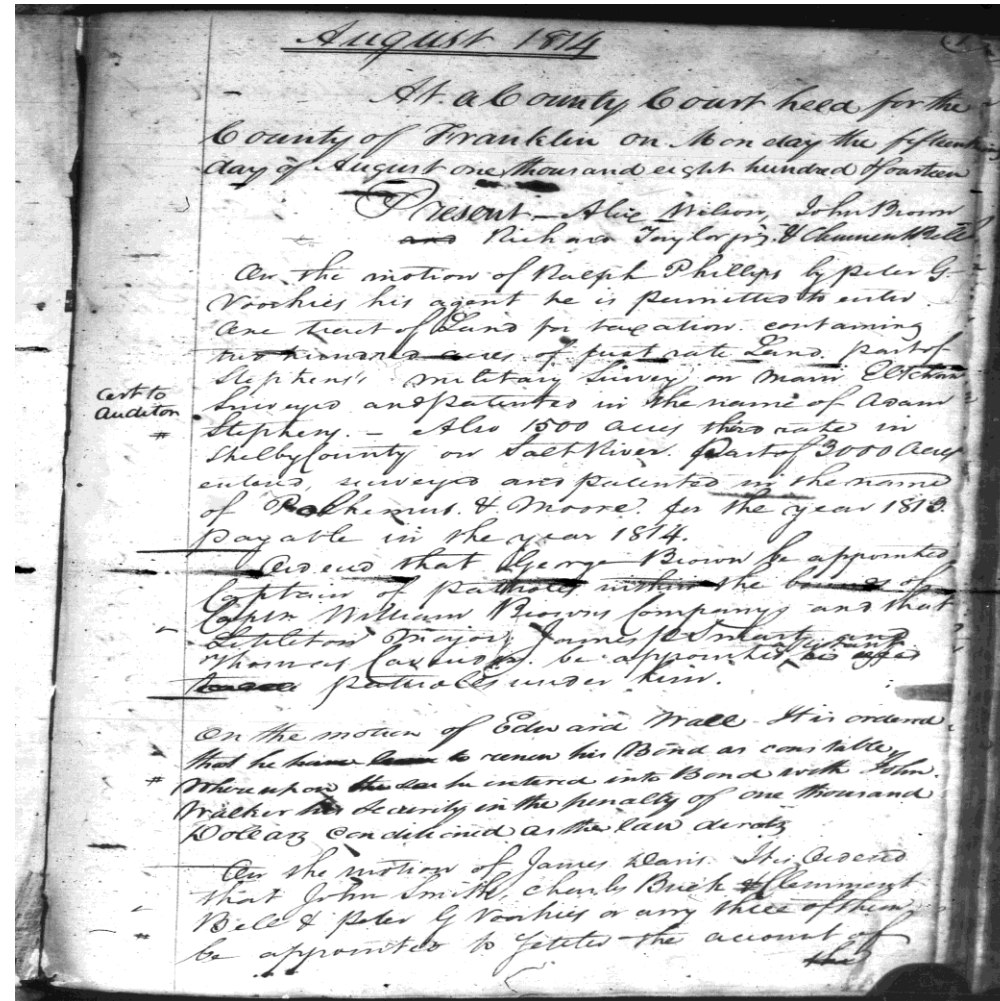 August 1814
At a County Court held for the
County of Franklin on Monday the fifteenth
day of August one thousand eight hundred & fourteen
Present - Wilson, John Brown
and Richard Taylor jr. & Clement Bell
On the motion of Ralph Phillips by Peter G
Voorhies his agent he is permitted to enter
One tract of Land for taxation containing
two hundred acres of first rate Land part of
Stephens's military Survey on Main Elkhorn
cert to
Auditor
#
Surveyed and patented in the name of Adam
Stephens. - Also 1500 acres third rate in
Shelby County on Salt River. Part of 3000 Acres
entered, surveyed and patented in the name
of Polhemus & Moore for the year 1813.
payable in the year 1814.
Ordered that George Brown be appointed
Captain of patrolls within the bounds of
Captn William Browns Company and that
Littleton Major, James Smart and
Thomas be appointed
patrolls under him.
On the motion of Edward Wall It is ordered
that he have leave to renew his Bond as constable
#
Whereupon he entered into Bond with John
Walker his Security in the penalty of one thousand
Dollars conditioned as the law directs
On the motion of James Davis. It is Ordered
that John Smith, Charles Buck & Clemment
Bell & Peter G Voorhies or any three of them
#
be appointed to settle the account of
the